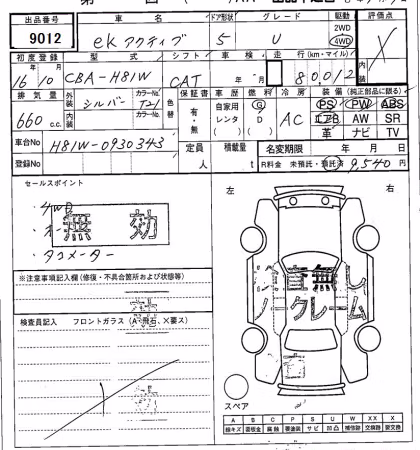 出品番号 車名 ドア形状 グレード 駆動 評価点
9012 ekアクティブ 5 U 2WD 4WD X
初度登録 型式 シフト 車検 走行(km・マイル) 内装
16年10月 CBA-H81W CAT 年 月 80,012
排気量 外装 シルバー カラーNo. T21 色替 保証書 車歴 燃料 冷房 装備(純正部品に限る)
660 c.c. 内装 カラーNo. 有・無 自家用 レンタ ( ) G D ( ) AC PS PW ABS
エアB AW SR
革 ナビ TV
車台No H81W-0930343 定員 人 積載量 t 名変期限 年 月 日
登録No R料金 未預託・預託済 9,540円
セールスポイント
・4WD
・タコメーター
無効
左 右
※注意事項記入欄(修復・不具合箇所および状態等)
検査員記入 フロントガラス(A・飛石、X要ス)
査無し
ノークレーム
スペア
A B C P S U W XX X
線キズ 要板金 腐触 要塗装 サビ 凹凸 補修跡 交換跡 要交換